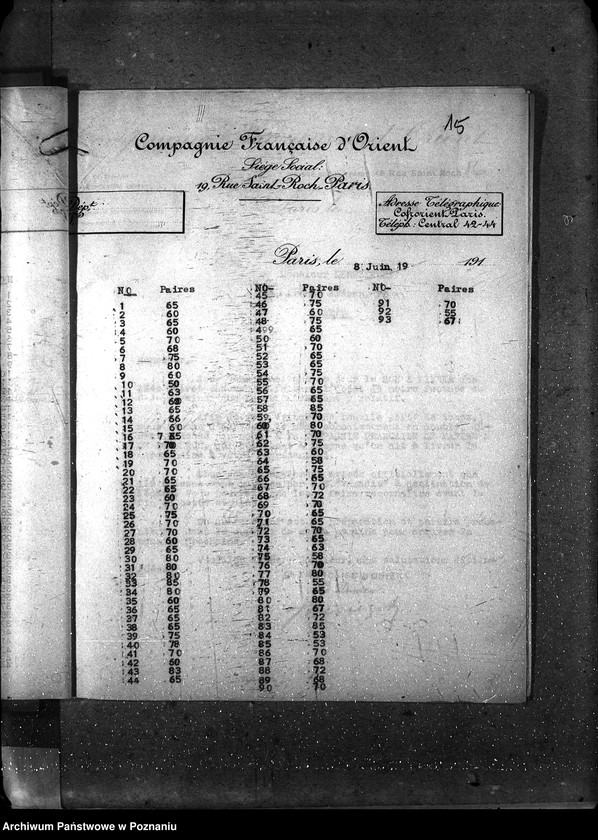 15
Compagnie Française d'Orient
Siège Social:
19, Rue Saint-Roch, Paris
Dépt
Adresse Télégraphique
Cofrorient Paris.
Téléph: Central 42-44
Paris, le 8 Juin 19 191
NO Paires
1 65
2 60
3 65
4 60
5 70
6 68
7 75
8 80
9 60
10 50
11 63
12 60
13 65
14 66
15 60
16 65
17 70
18 65
19 70
20 70
21 65
22 65
23 60
24 70
25 75
26 70
27 70
28 60
29 65
30 80
31 80
32 80
33 85
34 80
35 60
36 65
37 65
38 65
39 75
40 78
41 70
42 60
43 83
44 65
NO- Paires
45 70
46 75
47 60
48 75
49 65
50 60
51 70
52 65
53 65
54 75
55 70
56 65
57 65
58 85
59 70
60 80
61 70
62 75
63 60
64 58
65 75
66 65
67 70
68 72
69 70
70 65
71 65
72 70
73 65
74 63
75 58
76 70
77 80
78 55
79 65
80 80
81 67
82 72
83 85
84 53
85 53
86 70
87 68
88 72
89 68
90 70
NO- Paires
91 70
92 55
93 67
Archiwum Państwowe w Poznaniu